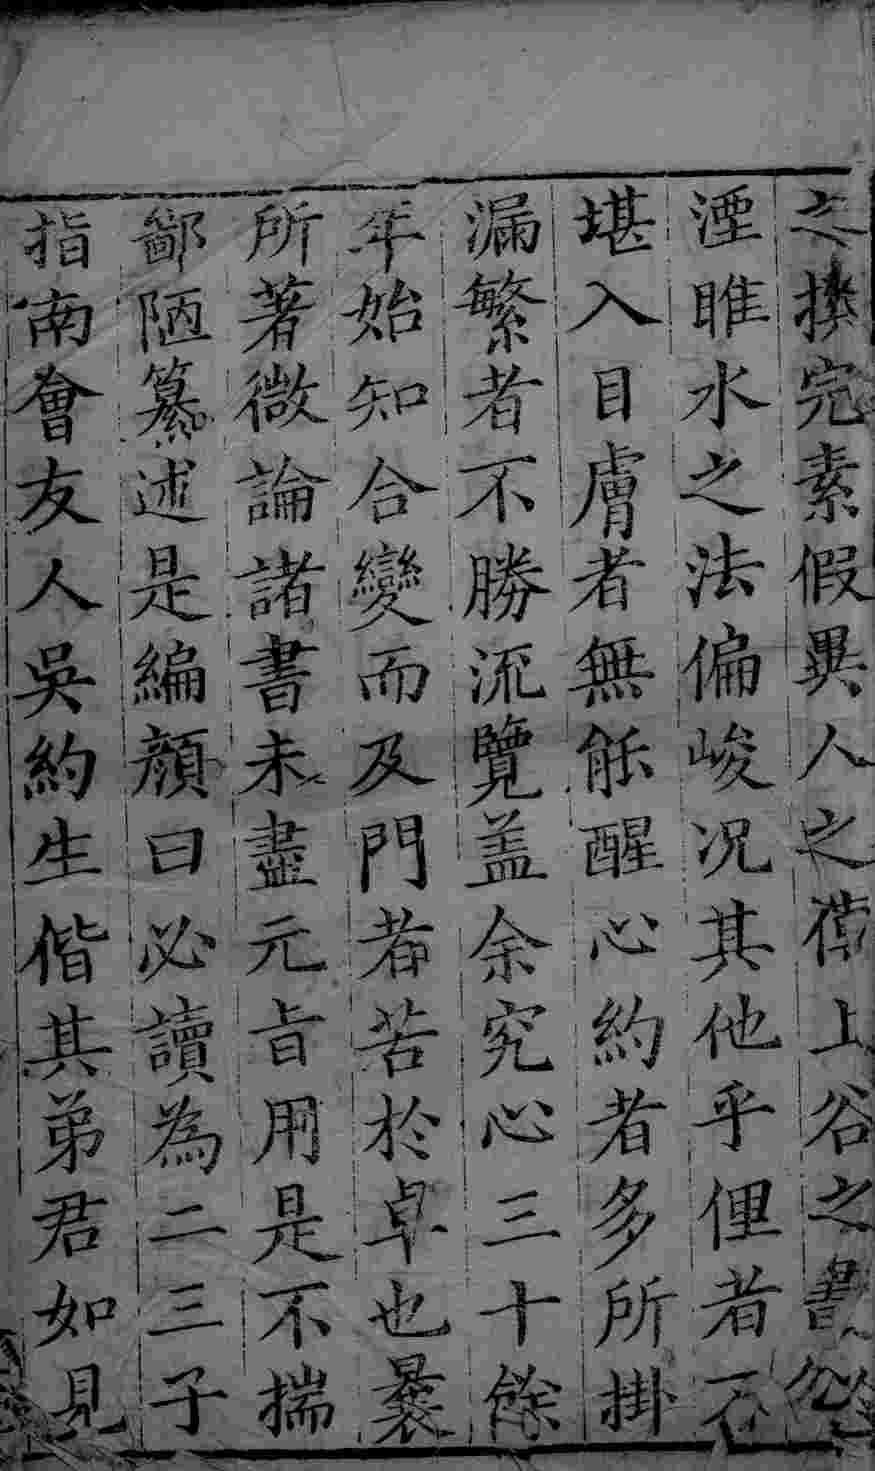 之撰完素假異人之傳上谷之書
湮睢水之法偏峻况其他乎俚者不
堪入目膚者無能醒心約者多所掛
漏繁者不勝流覽盖余究心三十餘
年始知合變而及門者苦於卓也曩
所著微論諸書未盡元旨用是不揣
鄙陋纂述是編顔曰必讀為二三子
指南會友人吳約生偕其弟君如見